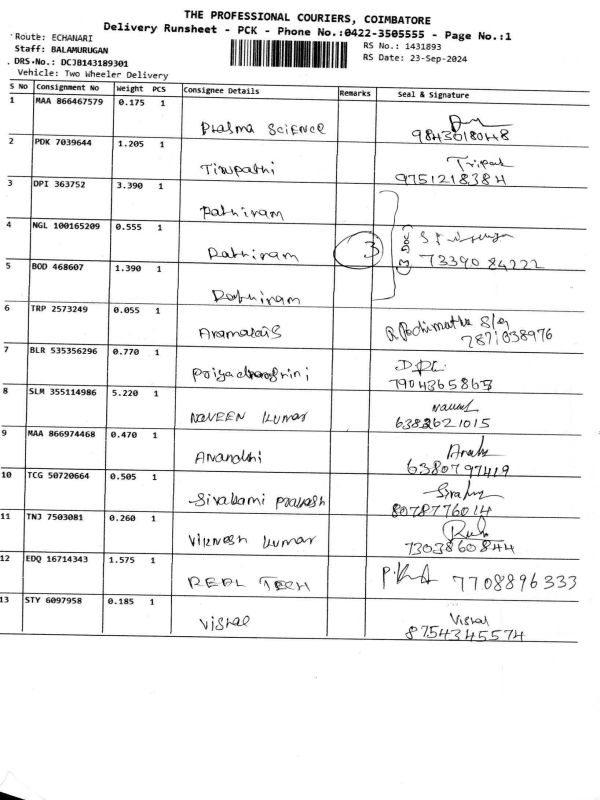 THE PROFESSIONAL COURIERS, COIMBATORE
Delivery Runsheet - PCK - Phone No.:0422-3505555 - Page No.:1
Route: ECHANARI
RS No.: 1431893
Staff: BALAMURUGAN
RS Date: 23-Sep-2024
DRS-No.: DCJB143189301
Vehicle: Two Wheeler Delivery
S No Consignment No Weight PCS Consignee Details Remarks Seal & Signature
1 MAA 866467579 0.175 1
Plasma SCIENCE 9843018048
2 PDK 7039644 1.205 1
Tirupathi 9751218384
3 DPI 363752 3.390 1
Pathiram
4 NGL 100165209 0.555 1
Pathiram 3 (3 Doc) 73390 84222
5 BOD 468607 1.390 1
Pathiram
6 TRP 2573249 0.055 1
7871038976
7 BLR 535356296 0.770 1
7904365865
8 SLM 355114986 5.220 1
NAVEEN KUMAR 6382621015
9 MAA 866974468 0.470 1
Anandhi 6380797419
10 TCG 50720664 0.505 1
Sivakami Prakash 8078776014
11 TNJ 7503081 0.260 1
VIKNESH KUMAR 7303860844
12 EDQ 16714343 1.575 1
REAL TECH 7708896333
13 STY 6097958 0.185 1
Vishal Vishal
8754345574